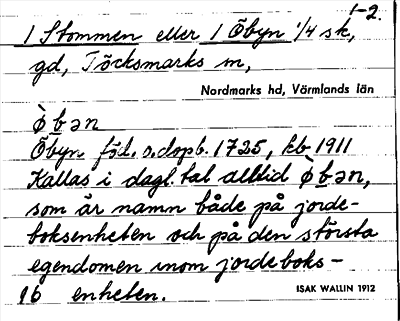 1-2.
1 Stommen eller 1 Öbyn 1/4 sk,
gd, Töcksmarks sn,
Nordmarks hd, Värmlands län
ò̱bən
Öbyn föd. o. dopb. 1725, kb 1911
Kallas i dagl. tal alltid ò̱bən,
som är namn både på jorde-
boksenheten och på den största
egendomen inom jordeboks-
16 enheten.
ISAK WALLIN 1912